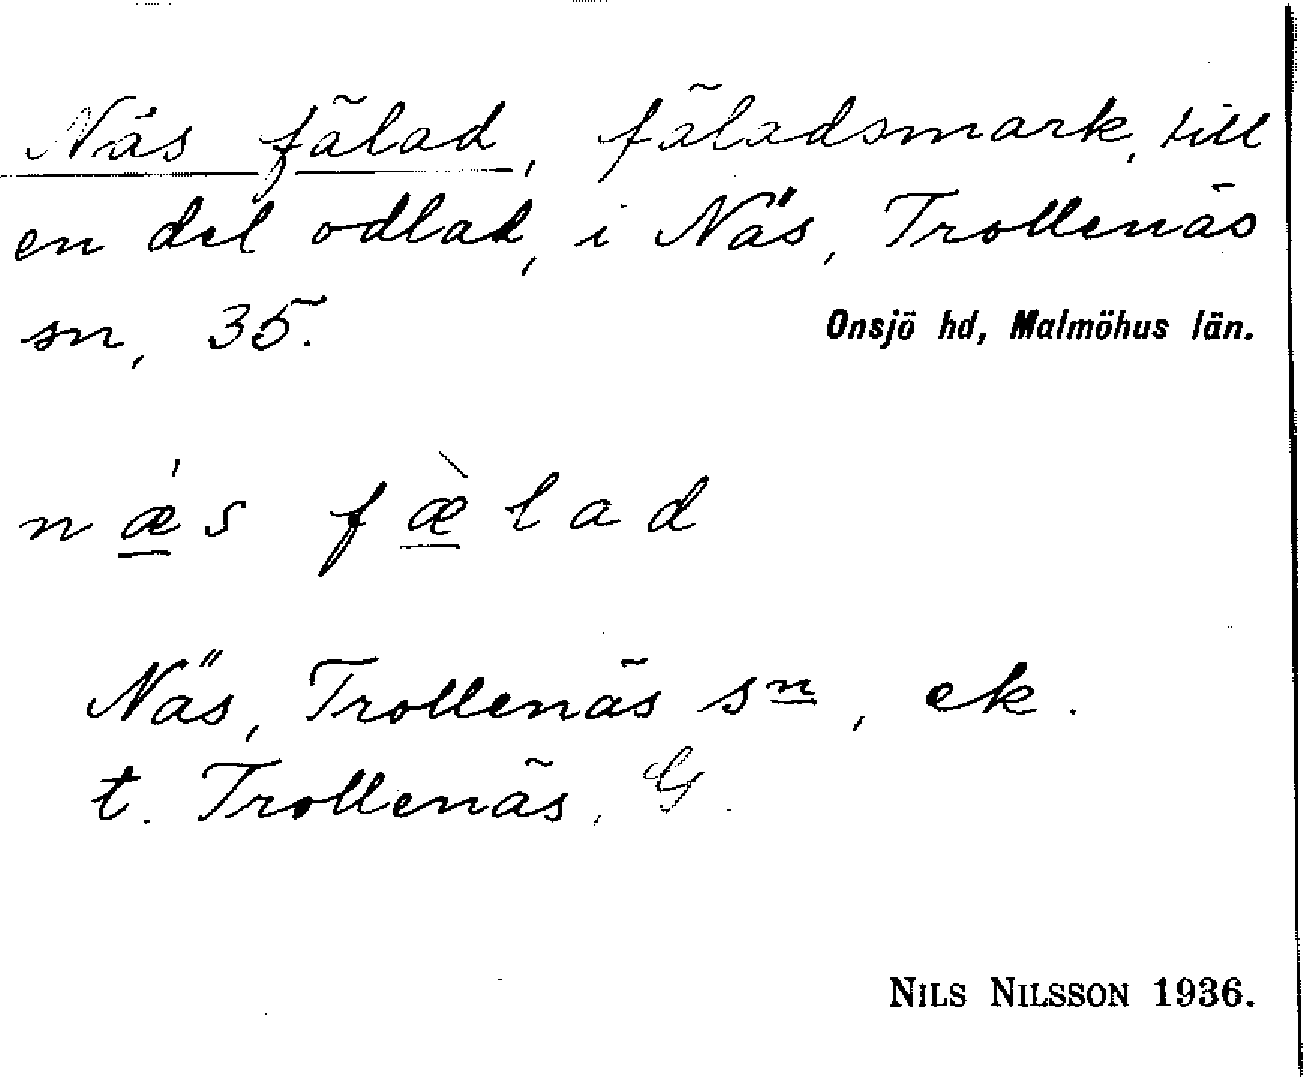 Näs fälad, fäladsmark, till
en del odlad, i Näs, Trollenäs
sn, 35.
Onsjö hd, Malmöhus län.
nǽ̲s fæ̲̀lad
Näs, Trollenäs sn, ek.
t. Trollenäs, G.
NILS NILSSON 1936.